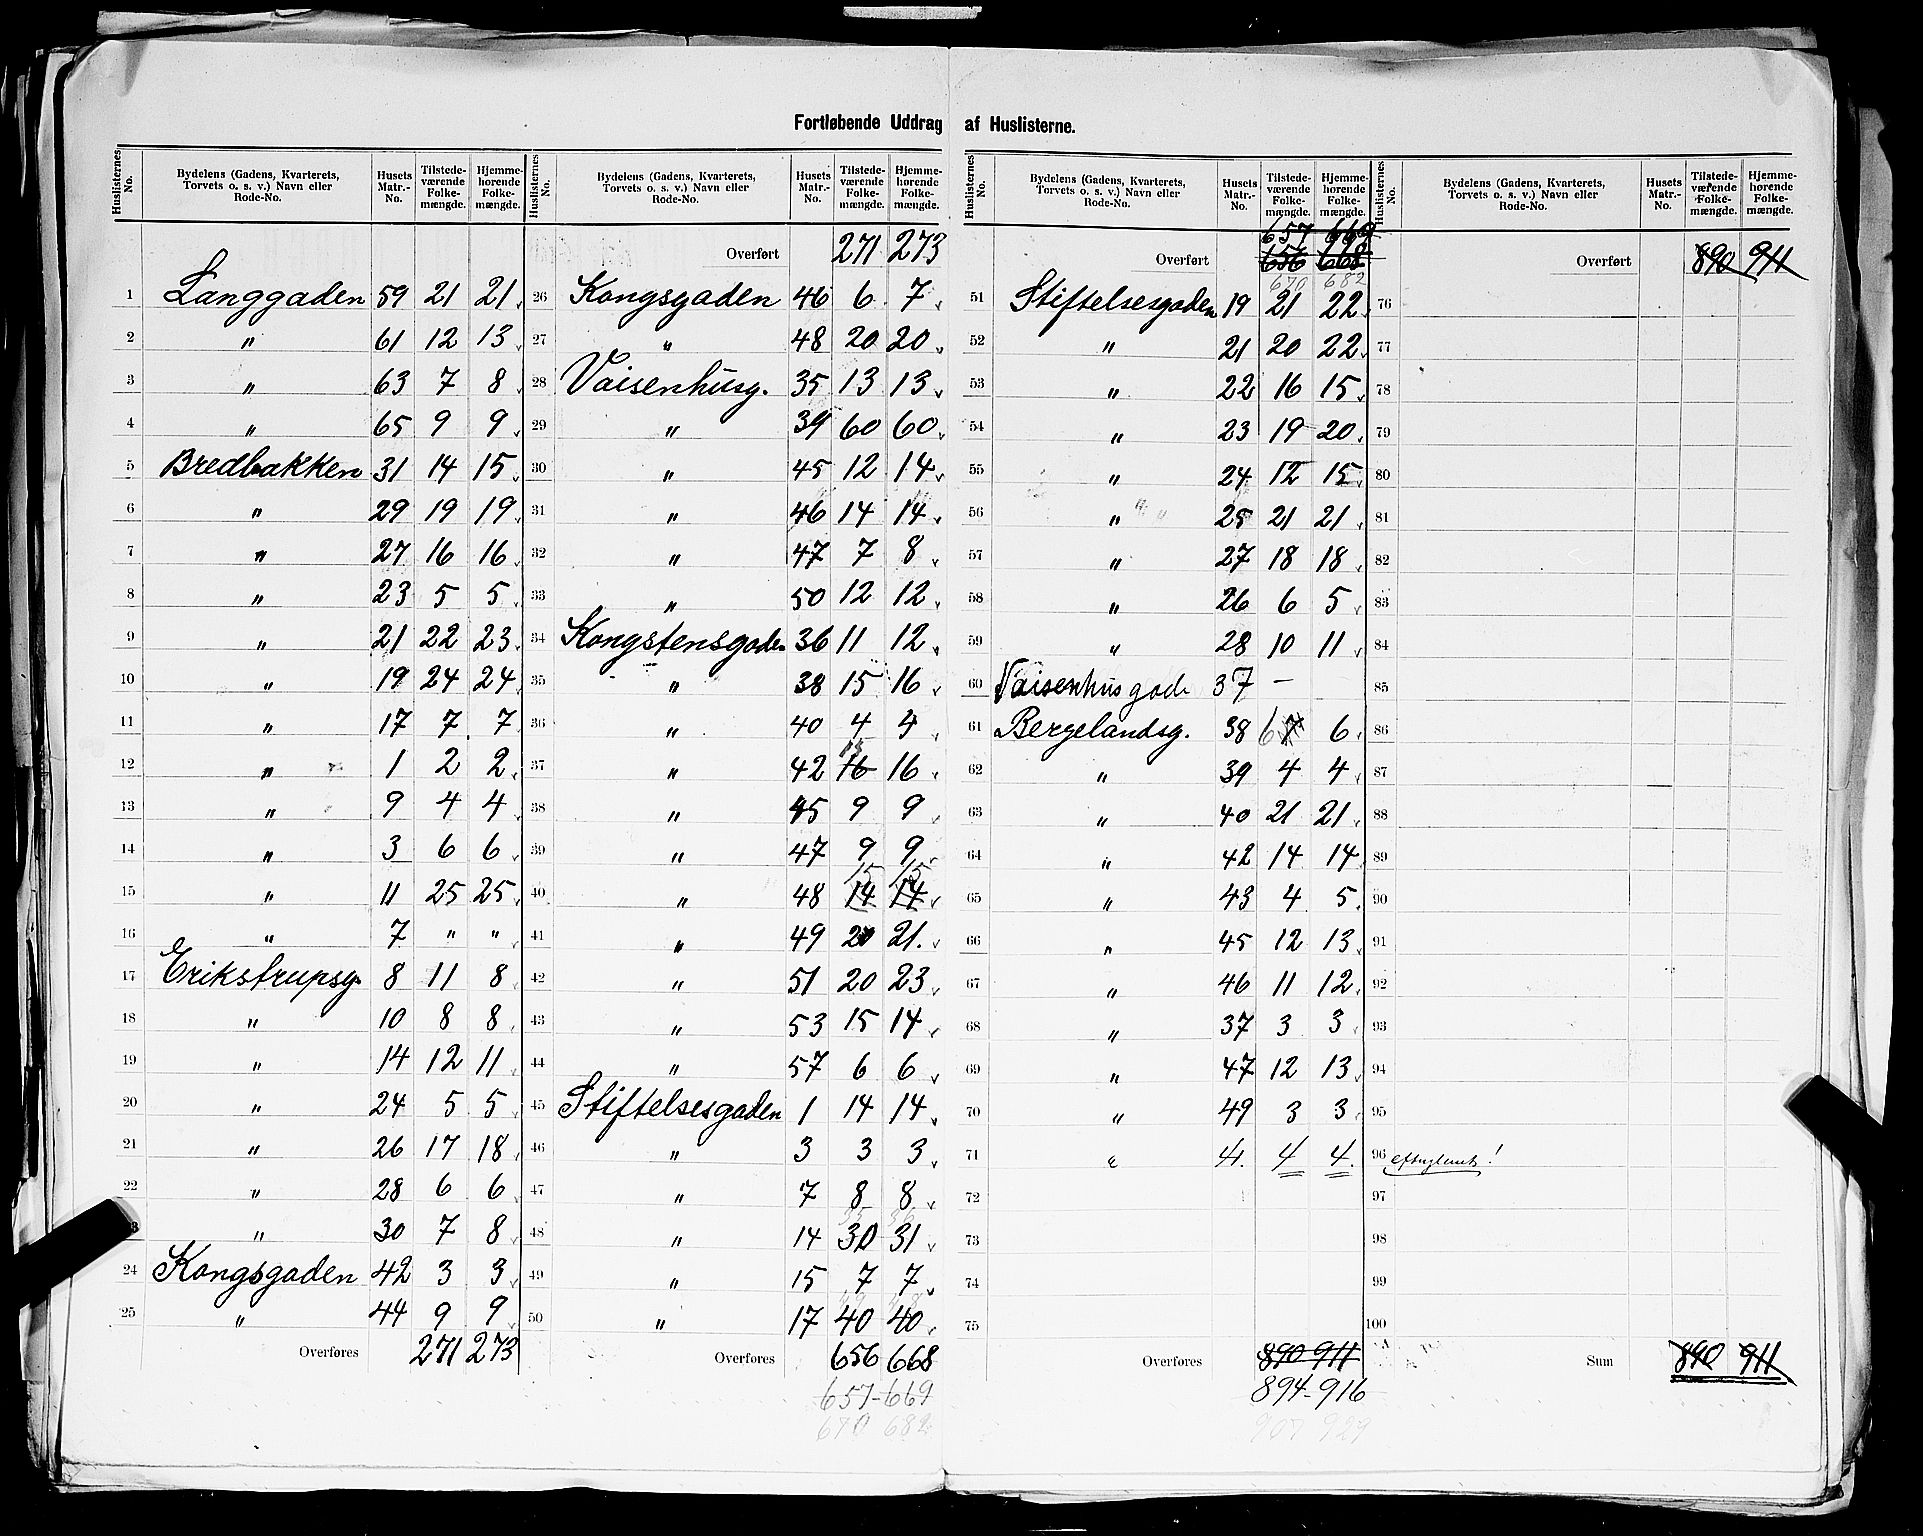 Fortløbende Uddrag af Huslisterne.
Huslisternes No. | Bydelens (Gadens, Kvarterets, Torvets o. s. v.) Navn eller Rode-No. | Husets Matr.-No. | Tilstedeværende Folkemængde. | Hjemmehørende Folkemængde.
Overført 271 273
Overført 657 669
656 668
670 682
Overført 890 911
1 Langgaden 59 21 21
2 " 61 12 13
3 " 63 7 8
4 " 65 9 9
5 Bredbakken 31 14 15
6 " 29 19 19
7 " 27 16 16
8 " 23 5 5
9 " 21 22 23
10 " 19 24 24
11 " 17 7 7
12 " 1 2 2
13 " 9 4 4
14 " 3 6 6
15 " 11 25 25
16 " 7 " "
17 Erikstrupsg. 8 11 8
18 " 10 8 8
19 " 14 12 11
20 " 24 5 5
21 " 26 17 18
22 " 28 6 6
3 " 30 7 8
24 Kongsgaden 42 3 3
25 " 44 9 9
Overføres 271 273
26 Kongsgaden 46 6 7
27 " 48 20 20
28 Vaisenhusg. 35 13 13
29 " 39 60 60
30 " 45 12 14
31 " 46 14 14
32 " 47 7 8
33 " 50 12 12
34 Kongstensgaden 36 11 12
35 " 38 15 16
36 " 40 4 4
37 " 42 16 16
38 " 45 9 9
39 " 47 9 9
15 15
40 " 48 14 14
41 " 49 20 21.
42 " 51 20 23
43 " 53 15 14
44 " 57 6 6
45 Stiftelsesgaden 1 14 14
46 " 3 3 3
47 " 7 8 8
48 " 14 30 31
49 " 15 7 7
50 " 17 40 40
Overføres 656 668
657-669
670 682
51 Stiftelsesgaden 19 21 22
52 " 21 20 22
53 " 22 16 15
54 " 23 19 20
55 " 24 12 15
56 " 25 21 21
57 " 27 18 18
58 " 26 6 5
59 " 28 10 11
60 Vaisenhusgade 37 -
61 Bergelandsg. 38 6 7 6
62 " 39 4 4
63 " 40 21 21
64 " 42 14 14
65 " 43 4 5
66 " 45 12 13
67 " 46 11 12
68 " 37 3 3
69 " 47 12 13
70 " 49 3 3
71 " 4. 4 4.
72
73
74
75
Overføres 890-911
894-916
907 929
76
77
78
79
80
81
82
83
84
85
86
87
88
89
90
91
92
93
94
95
96
97
98
99
100
Sum 890 911